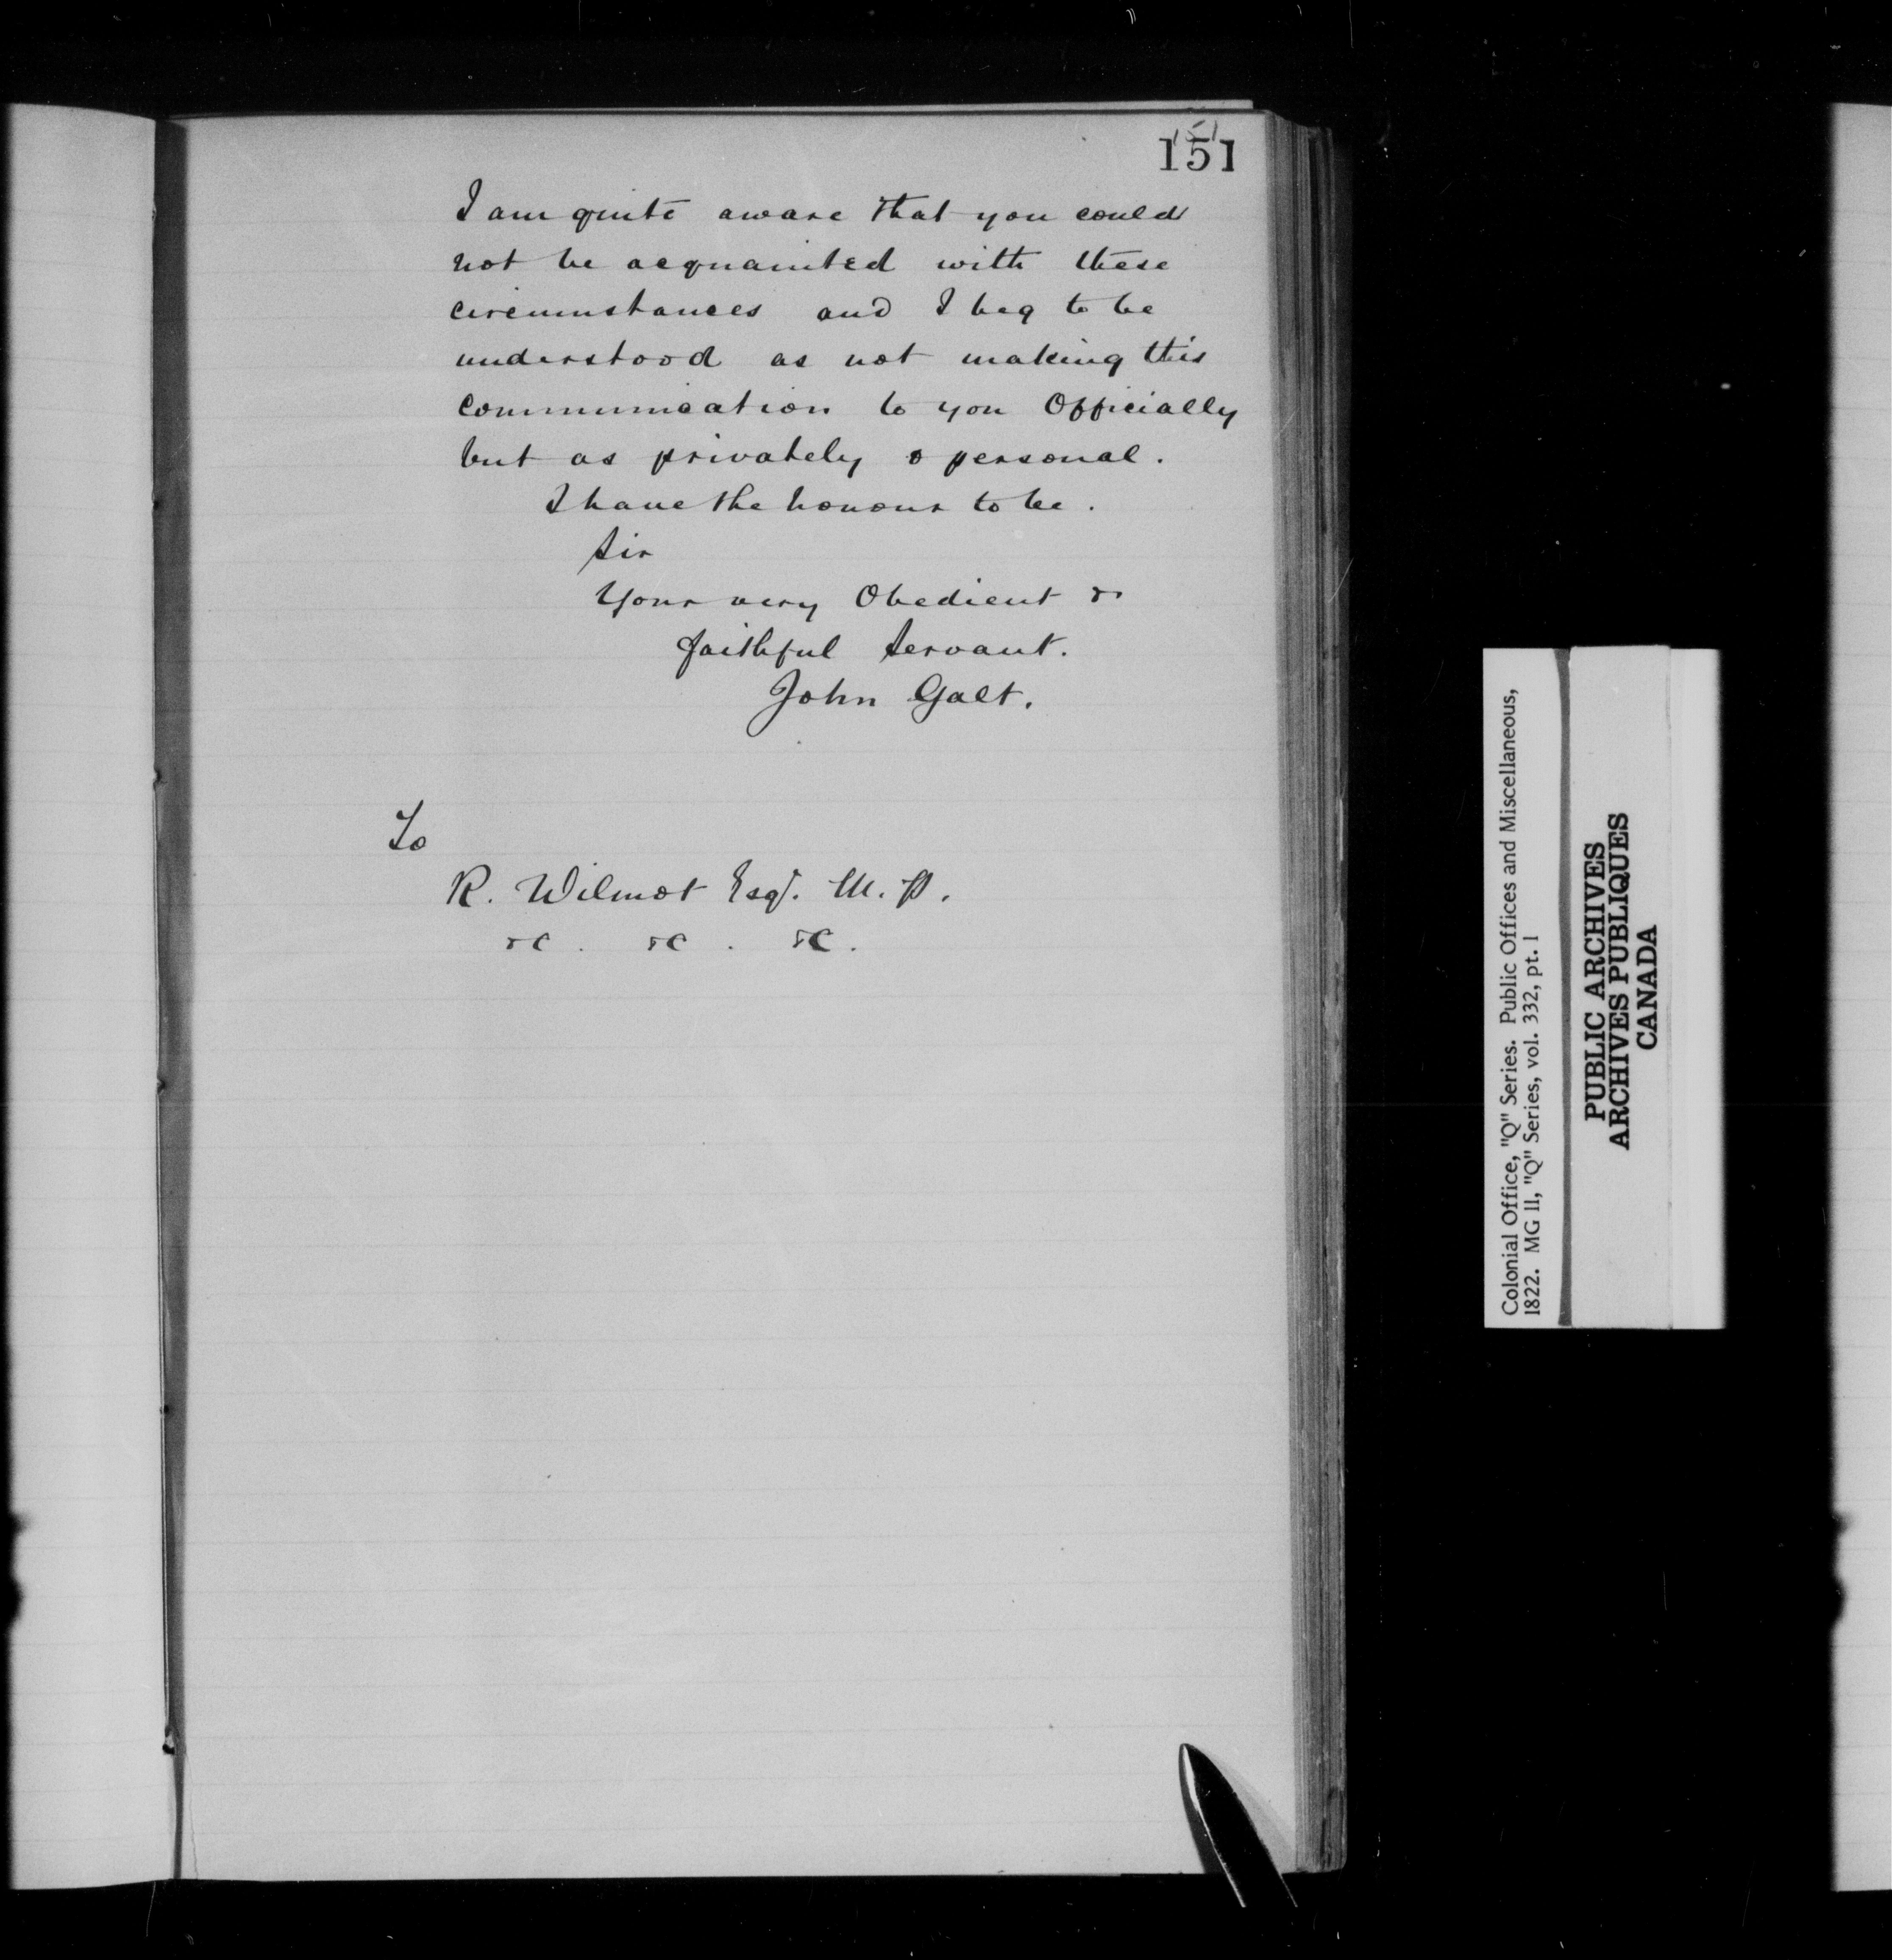 151
151
I am quite aware that you could
not be acquainted with these
circumstances and I beg to be
understood as not making this
communication to you Officially
but as privately & personal.
I have the honour to be.
Sir
Your very Obedient &
faithful Servant.
John Galt.
To
R. Wilmot Esqr. M.P.
&c. &c. &c.
Colonial Office, "Q" Series. Public Offices and Miscellaneous,
1822. MG 11, "Q" Series, vol. 332, pt. 1
PUBLIC ARCHIVES
ARCHIVES PUBLIQUES
CANADA